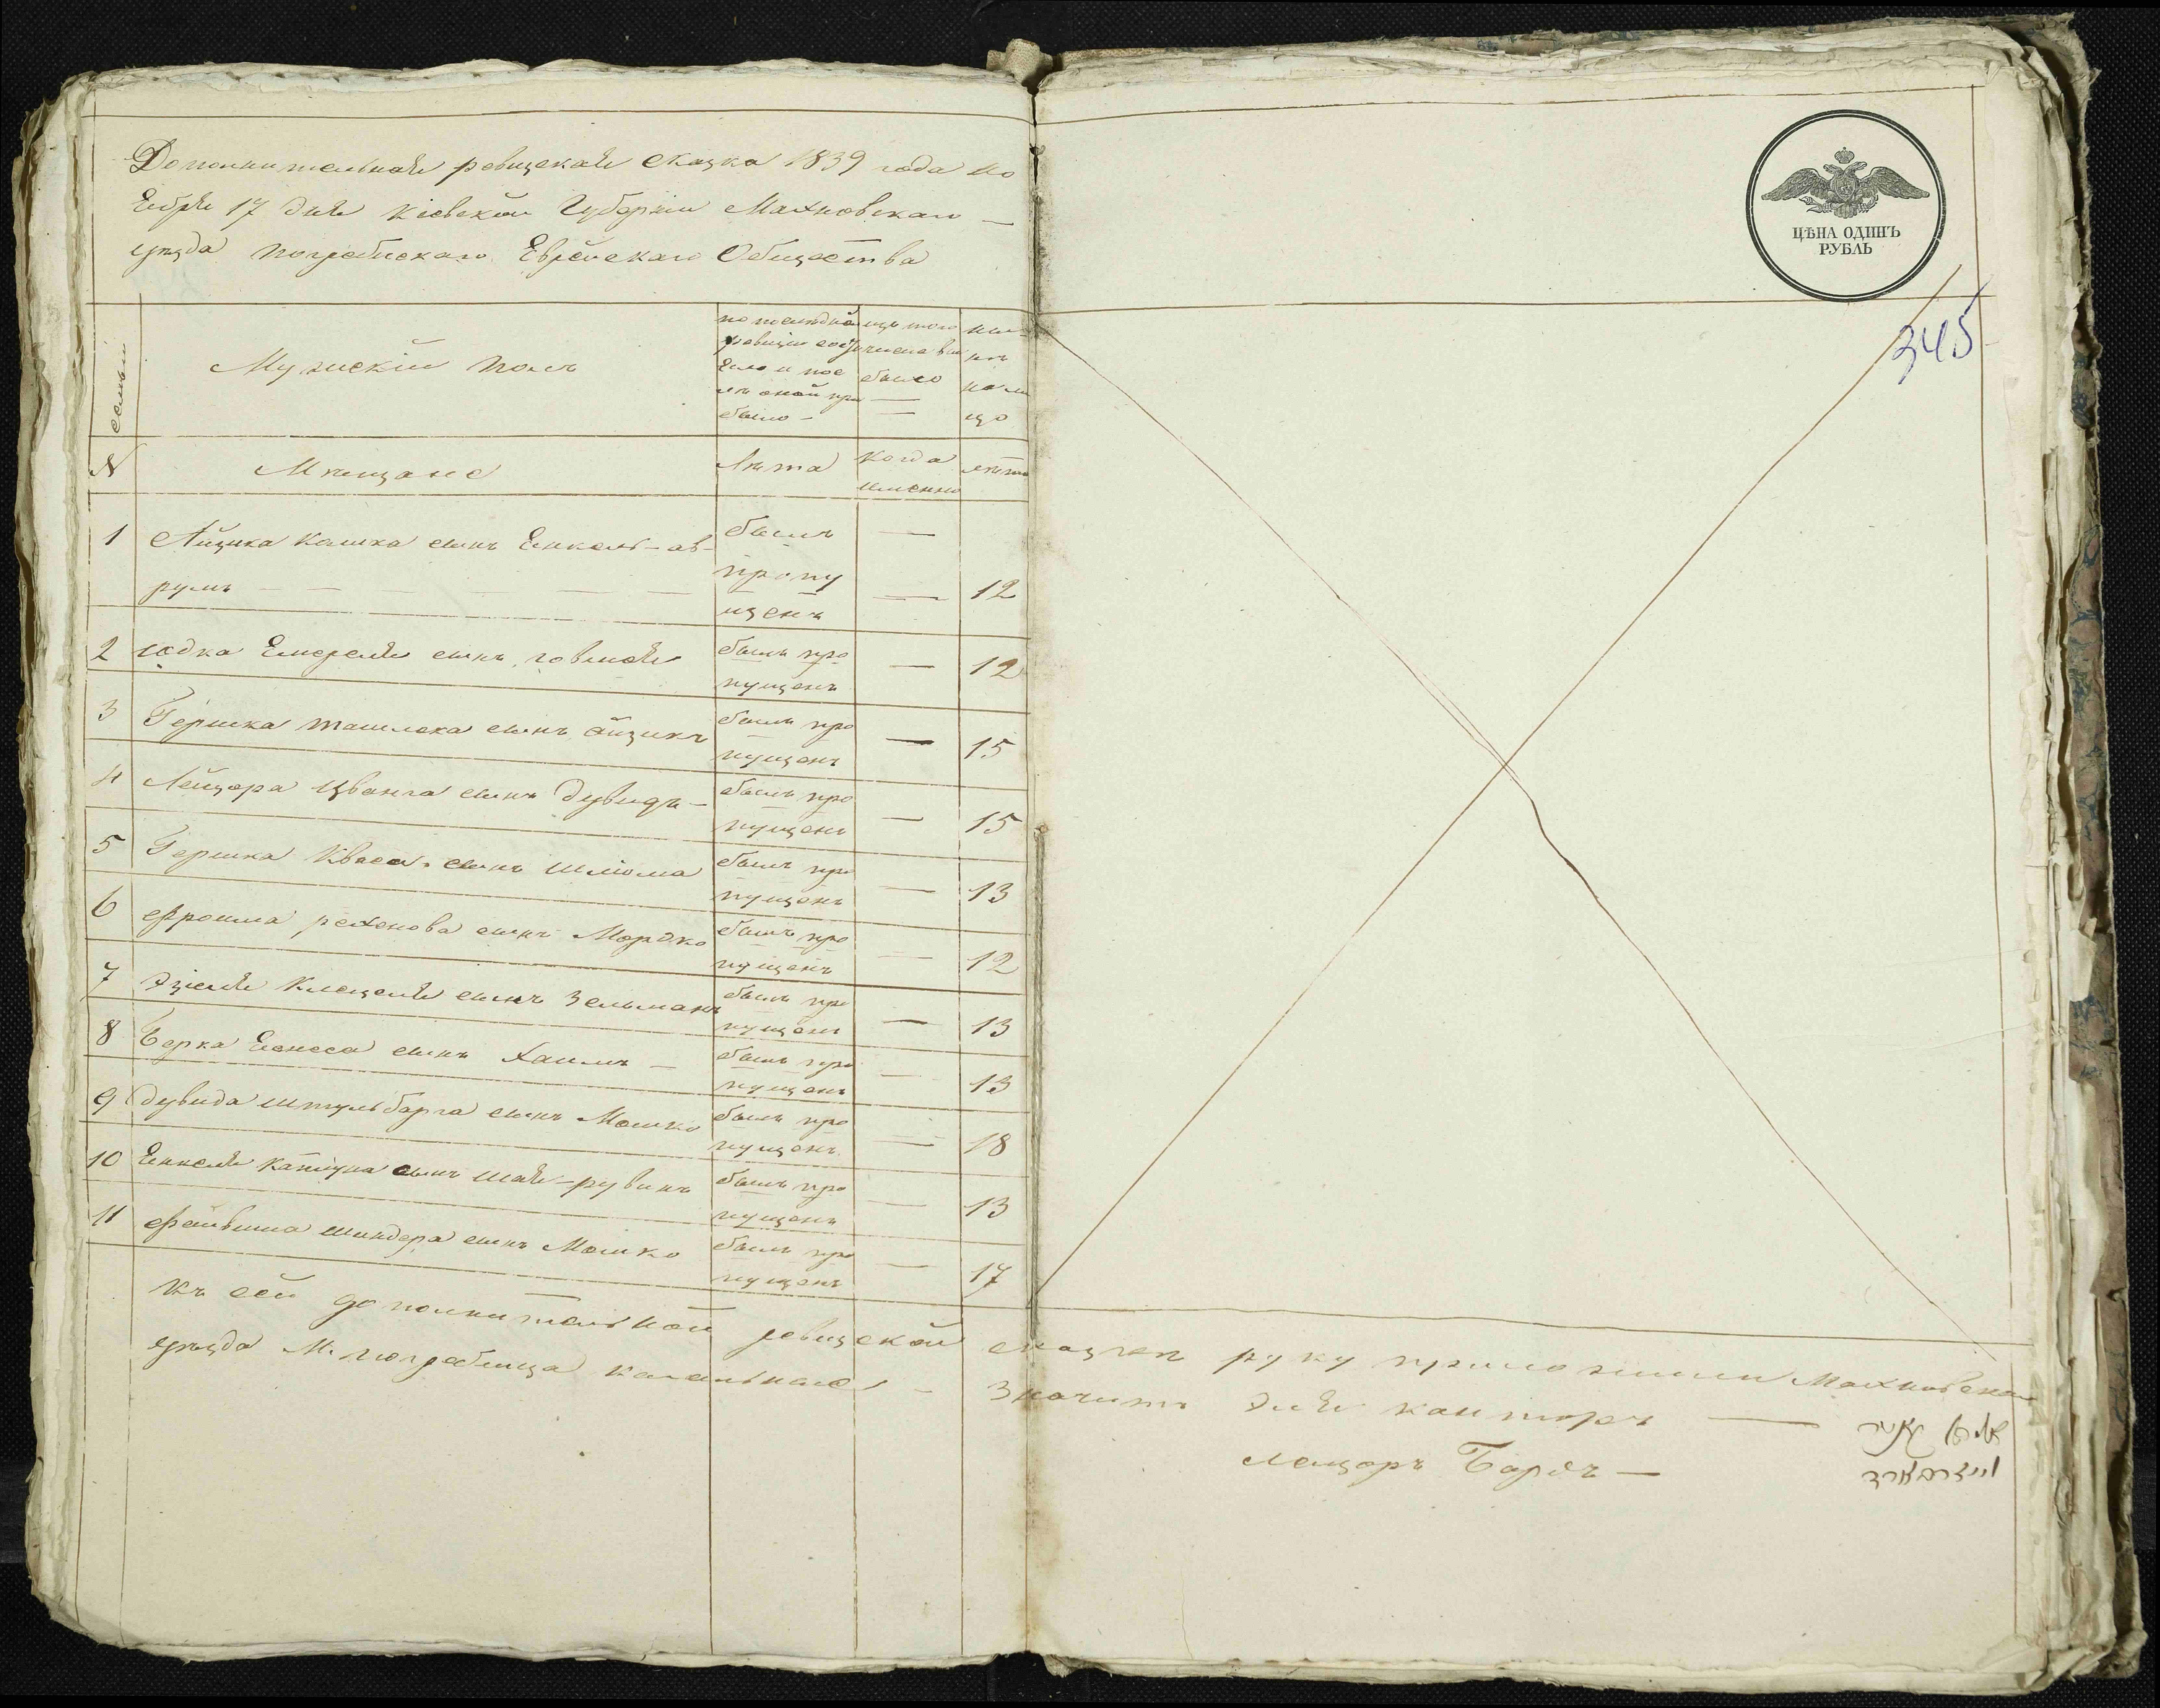 Дополнительная ревизская сказка 1839 года но
ебря 17 дня Кіевской Губерніи Махновскаго
уезда погребискаго Еврейскаго Общества
ЦѢНА ОДИНЪ
РУБЛЬ
345
семьи
Мужескій полъ
по последней
ревизіи состо
яло и пос
лѣ оной при
было
изъ того
числа вы
было
ны
нѣ
на ли
цо
N Мещане лѣта когда
именно лѣта
1 Айзика Кашка сынъ Енкель-ав-
румъ
былъ
пропу
щенъ
12
2 юдка сынъ былъ про
пущенъ 12
3 Гершка ташлека сынъ айзикъ былъ про
пущенъ 15
4 Лейзора Цванга сынъ Дувидъ былъ про
пущенъ 15
5 Гершка Кваса сынъ шлиома былъ про
пущенъ 13
6 Фроима сынъ Мордко былъ про
пущенъ 12
7 сынъ Зельманъ былъ про
пущенъ 13
8 Берка сынъ Хаимъ былъ про
пущенъ 13
9 дувида штульбарга сынъ Мошко былъ про
пущенъ 18
10 Енкеля сынъ шая-рувинъ былъ про
пущенъ 13
11 Файвиша шиндера сынъ Мошко былъ про
пущенъ 17
Къ сей дополнительной ревизской сказки руку приложили Махновскаго
уезда М. погребища кагальные
лейзоръ